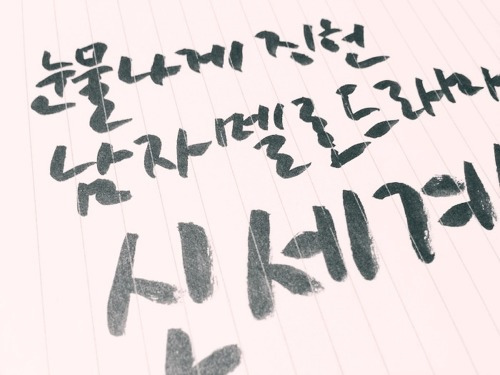 눈물나게 진한
남자 멜로드라마
신세계